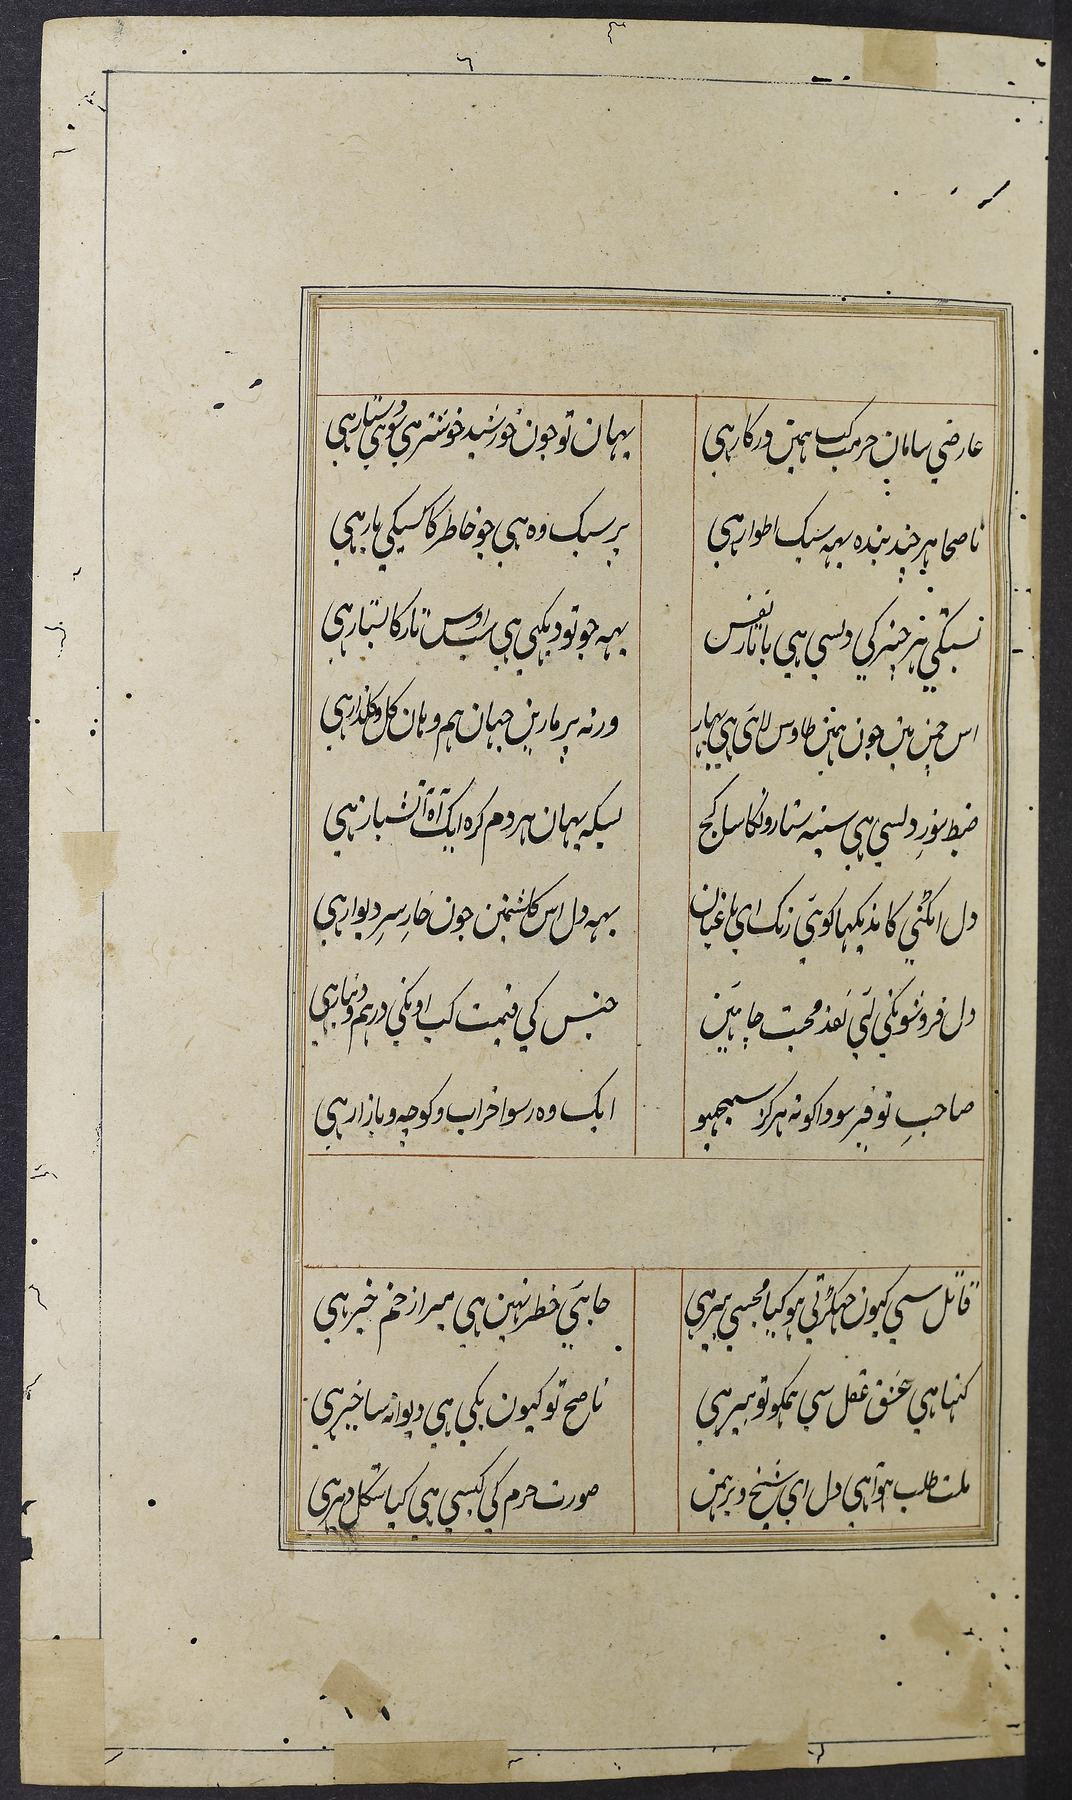 عارضی سامان حرمت کب ہمین درکار ہی
یہان تو جون خورشید خوش سر ہی دوہی ستار ہی
ناصحا ہر چند بندہ یہہ سبک اطوار ہی
پر سبک وہ ہی جو خاطر کا کسیکی بار ہی
بستگی ہر چیز کی دلسی ہی با تار نفس
یہہ جو تو دیکہی ہی سب اوس تار کا بستار ہی
اس چمن مین جون ہمین طاوس لائی ہی بہار
ورنہ پر مارین جہان ہم وہان گل و گلزار ہی
ضبط سوزِ دلسی ہی سینہ ستارونکا سا گنج
بسکہ یہان ہر دم گرہ ایک آہ آتشبار ہی
دل اٹکنی کا ندیکہا کوئی رنگ ای باغبان
یہہ دل اس گلشنمین جون خارِ سرِ دیوار ہی
دل فروشونکی لئی نقد محبت چاہئین
جنس کی قیمت کب اونکی درہم و دینار ہی
صاحبِ توقیر سودا کو نہ ہرگز سمجہیو
ایک وہ رسوا خراب و کوچہ و بازار ہی
قاتل سی کیون جہگڑتی ہو کیا مجسی بیر ہی
جاہئی خطر نہین ہی میرا زخم خیر ہی
کہتا ہی عشق عقل سی ہمکو تو بیر ہی
ناصح تو کیون بکی ہی دیوانہ سا خیر ہی
ملت طلب ہوا ہی دل ای شیخ و برہمن
صورت حرم کی کیسی ہی کیا شکل دیر ہی